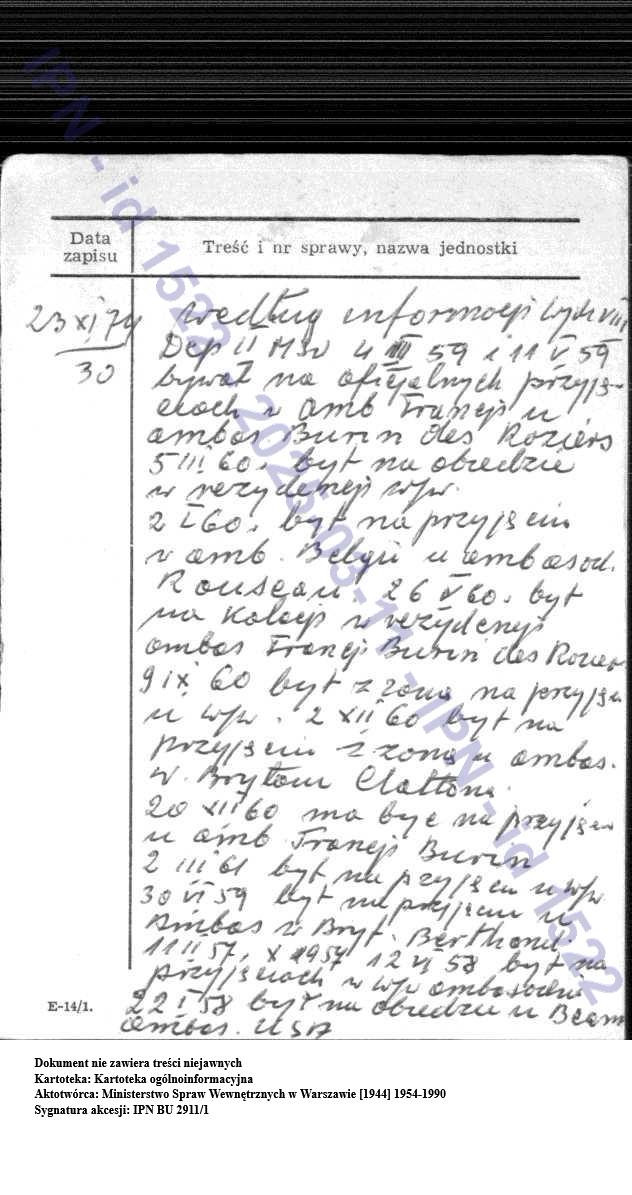 Data zapisu
Treść i nr sprawy, nazwa jednostki
23 XI 74
30
według informacji Wydz VIII
Dep II MSW 4 III 59 i 11 V 59
bywał na oficjalnych przyję-
ciach w Amb Francji u
ambas Burin des Roziers
5 III 60. był na obiedzie
w rezydencji w/w.
2 I 60. był na przyjęciu
w amb. Belgii u ambasad.
Rouseau. 26 V 60. był
na kolacji w rezydencji
ambas Francji Burin des Rozier
9 IX 60 był z żoną na przyjęciu
u w/w. 2 XII 60 był na
przyjęciu z żoną u ambas.
W. Brytanii Clattona.
20 XII 60 ma być na przyjęciu
u amb Francji Burin
2 III 61 był na przyjęciu u w/w
30 VI 59 był na przyjęciu u
Ambas W Bryt. Berthoud.
11 II 57, X 1957 12 VI 58 był na
przyjęciach u w/w ambasadora
22 I 58 był na obiedzie u Beam
ambas. USA
E-14/1.
Dokument nie zawiera treści niejawnych
Kartoteka: Kartoteka ogólnoinformacyjna
Aktotwórca: Ministerstwo Spraw Wewnętrznych w Warszawie [1944] 1954-1990
Sygnatura akcesji: IPN BU 2911/1
IPN - id 1522 - 2025-03-11 - IPN - id 1522